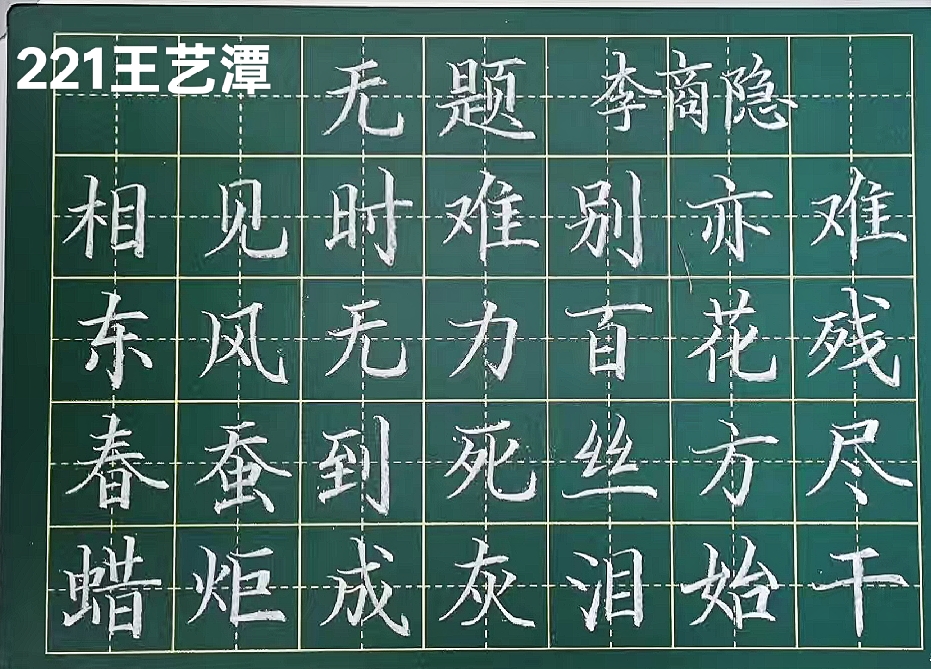 221王艺潭
无题 李商隐
相见时难别亦难
东风无力百花残
春蚕到死丝方尽
蜡炬成灰泪始干